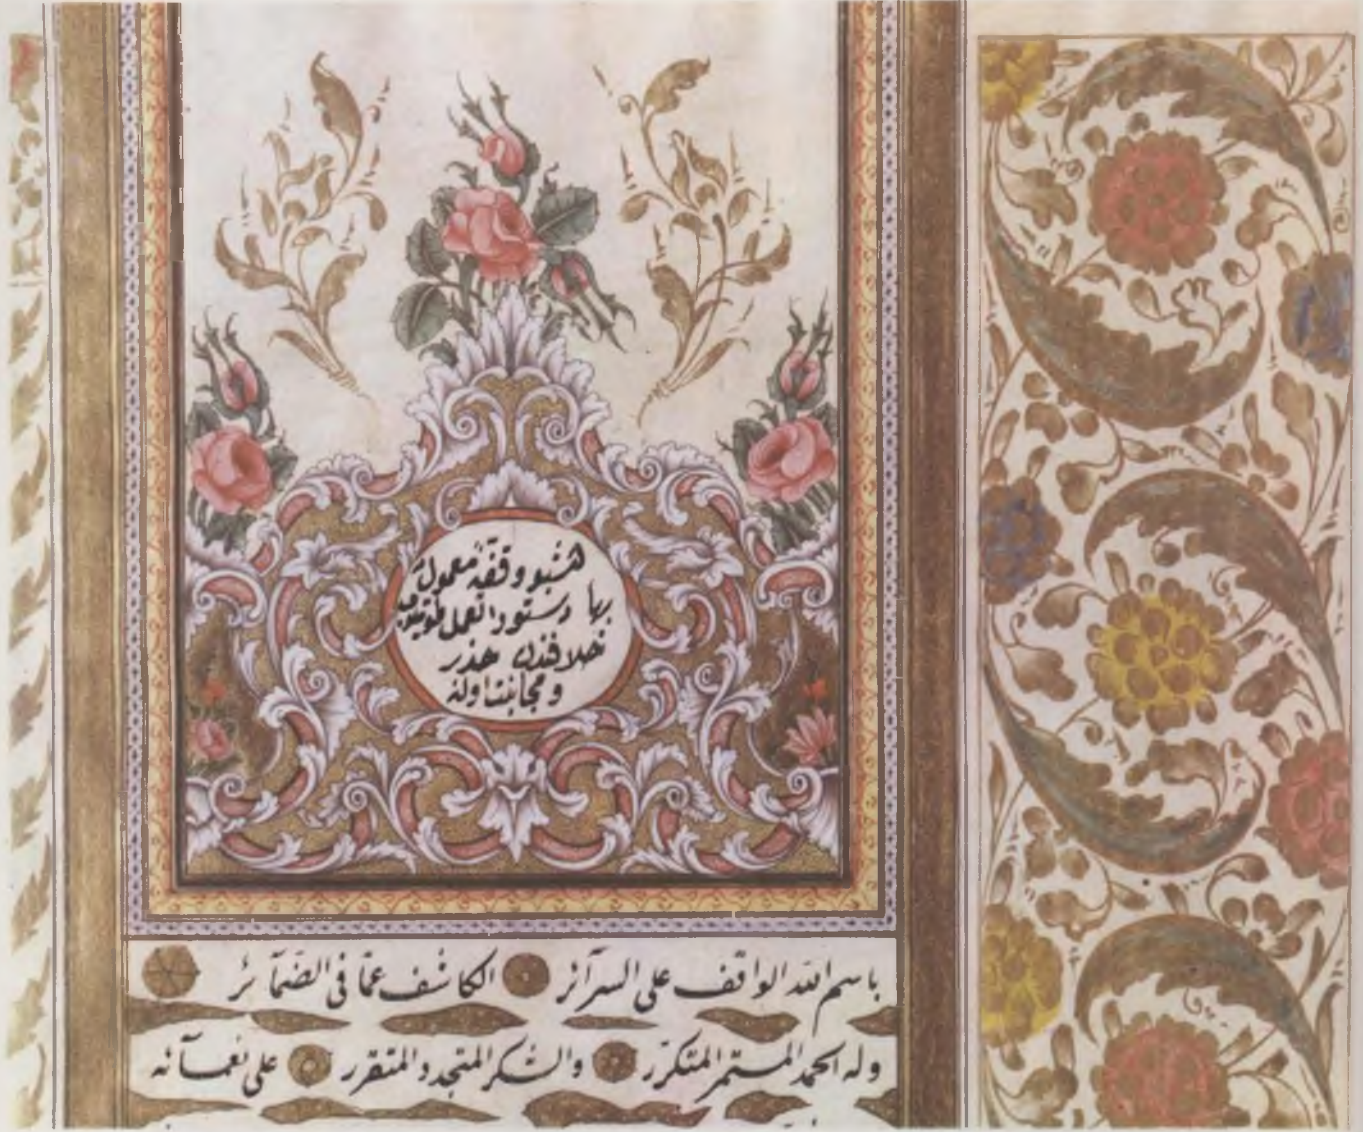 هشبو وقفیه معمول
بها دستورالعمل طوتیلوب
خلافندن حذر
و مجانبت اولنه
باسم الله الواقف على السرآئر الكاشف عمّا فى الضّمآئر
وله الحمد المستمر المتكرّر والشكر المتجدد المتقرر على نعمآئه